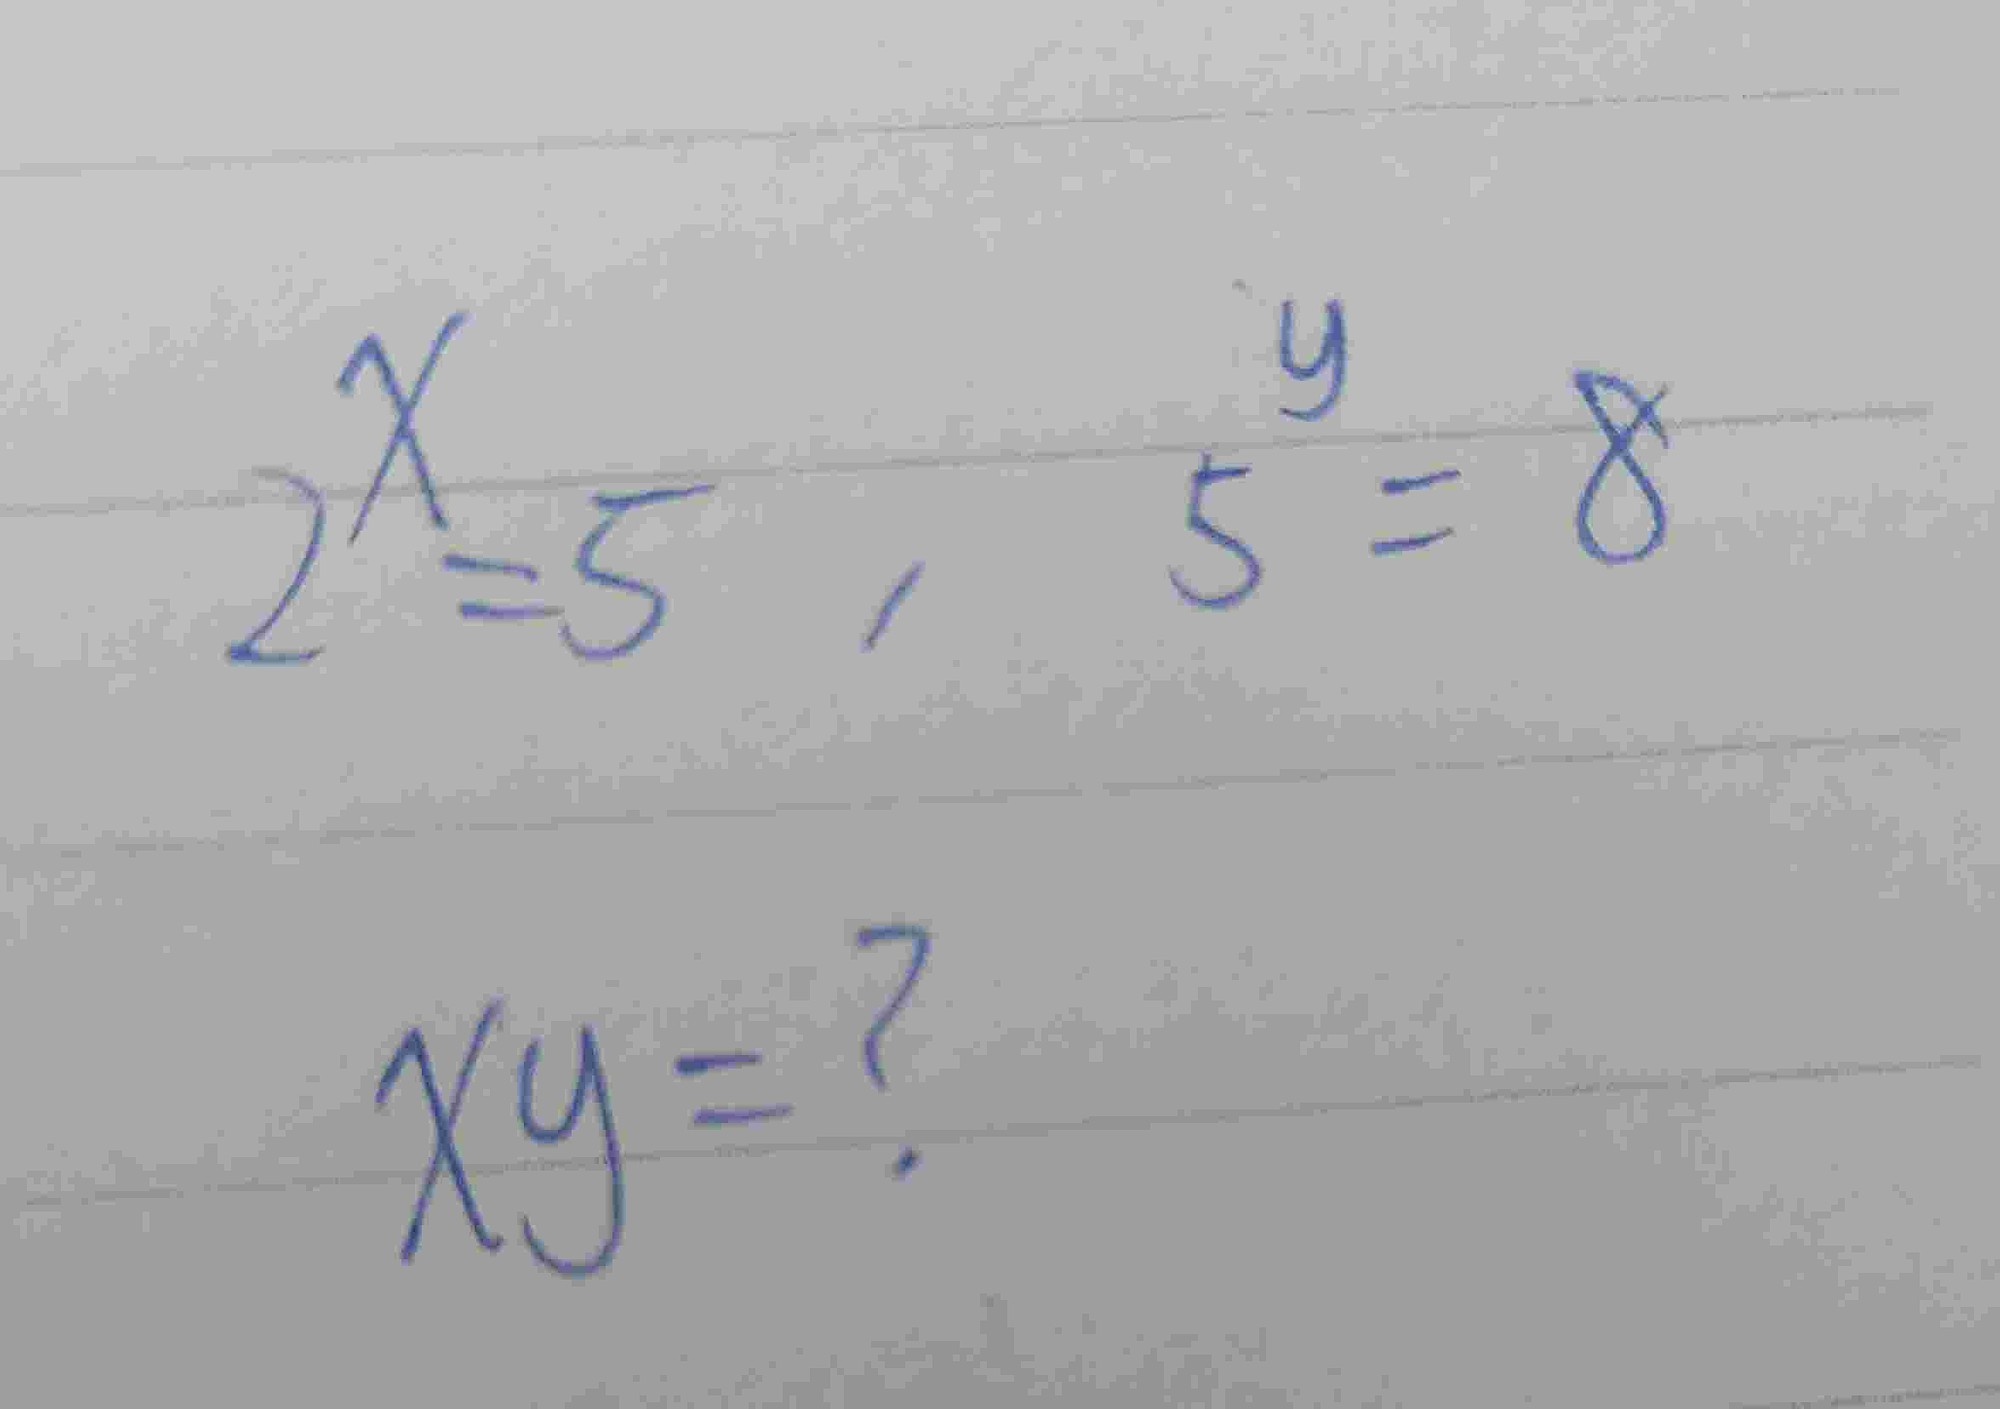 2^x = 5, 5^y = 8
xy = ?